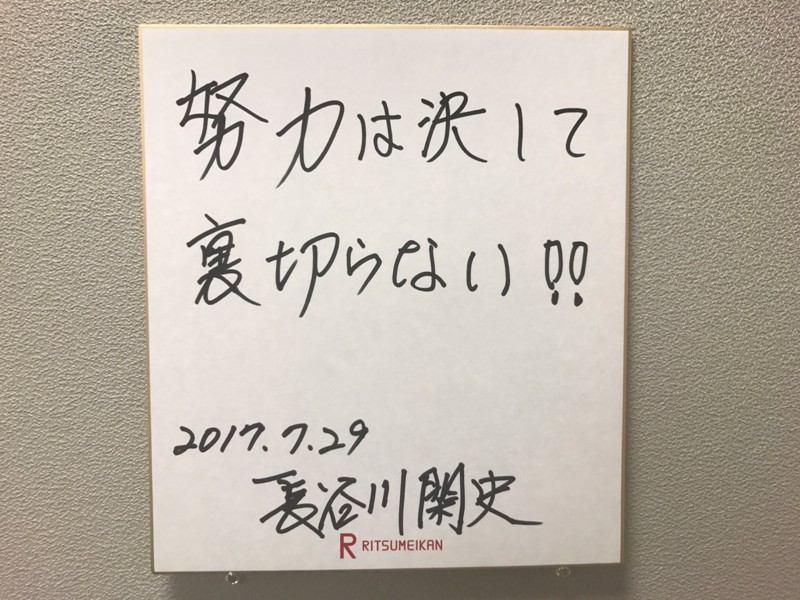 努力は決して
裏切らない!!
2017.7.29
長谷川関史
R RITSUMEIKAN